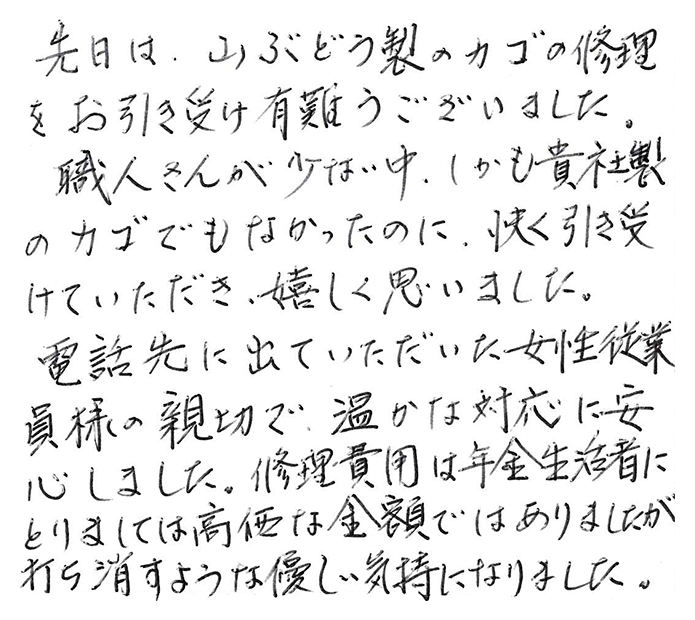 先日は、山ぶどう製のカゴの修理
をお引き受け有難うございました。
職人さんが少ない中、しかも貴社製
のカゴでもなかったのに、快く引き受
けていただき、嬉しく思いました。
電話先に出ていただいた女性従業
員様の親切で、温かな対応に安
心しました。修理費用は年金生活者に
とりましては高価な金額ではありましたが
打ち消すような優しい気持になりました。